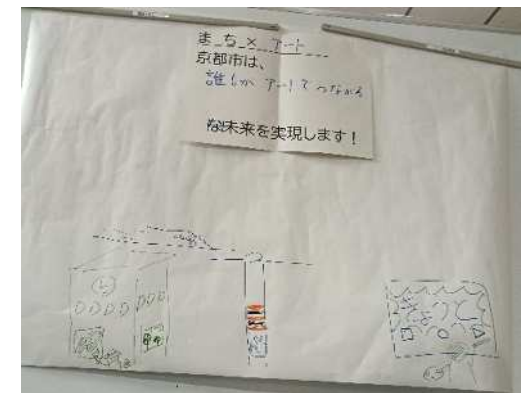 まち×アート
京都市は、
誰もが アートでつながる
な未来を実現します！
きょうと